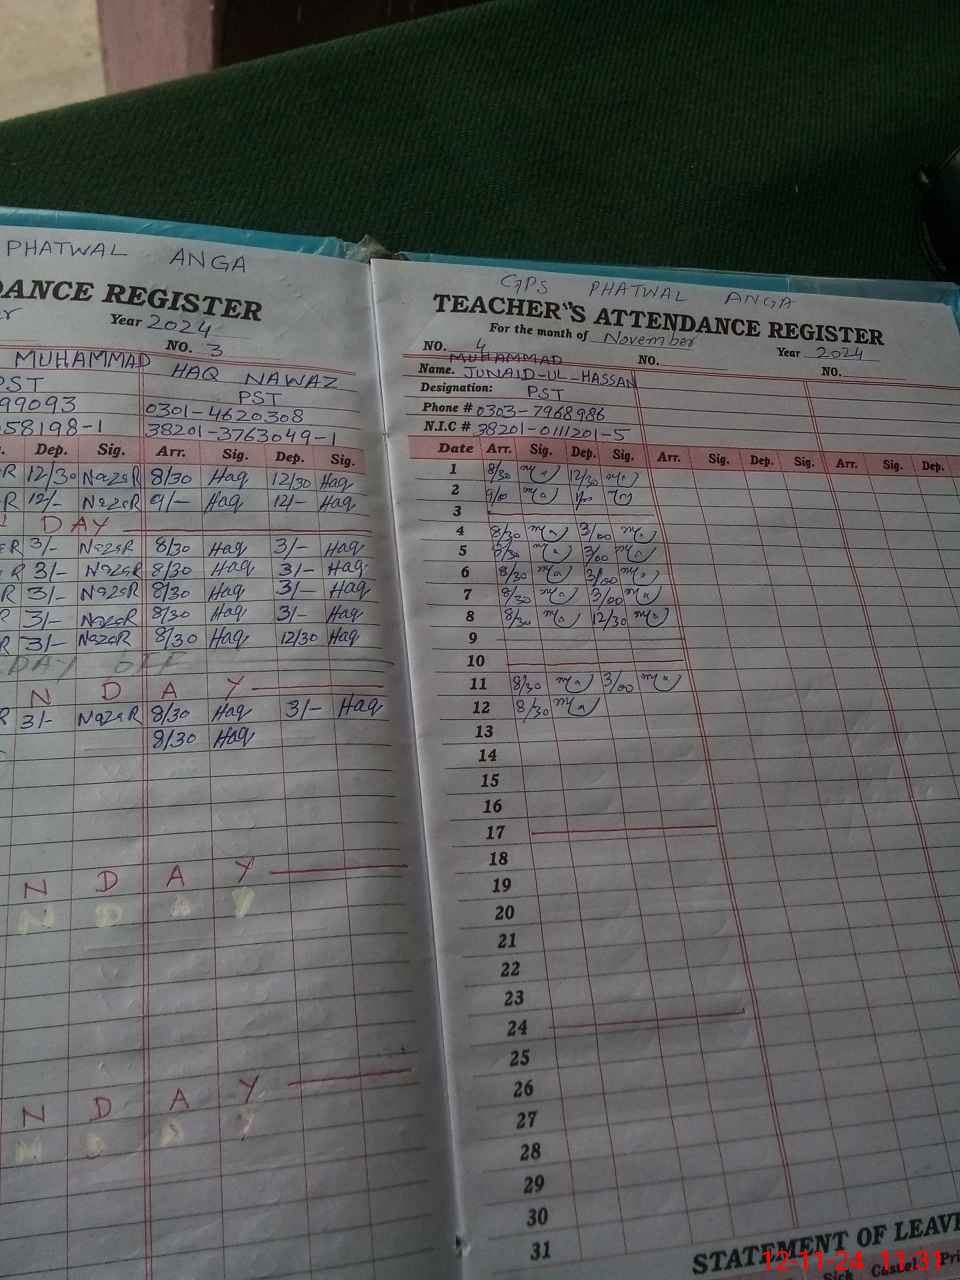 PHATWAL ANGA
DANCE REGISTER
Year 2024
NO. 3
MUHAMMAD HAQ NAWAZ
PST PST
99093 0301-4620308
058198-1 38201-3763049-1
Dep. Sig. Arr. Sig. Dep. Sig.
R 12/30 NazeR 8/30 Haq 12/30 Haq
R 12/- NazeR 9/- Haq 12/- Haq
DAY
ER 3/- NazeR 8/30 Haq 3/- Haq
R 3/- NazeR 8/30 Haq 3/- Haq
R 3/- NazeR 8/30 Haq 3/- Haq
R 3/- NazeR 8/30 Haq 3/- Haq
R 3/- NazeR 8/30 Haq 12/30 Haq
DAY OFF
N D A Y
R 3/- NazeR 8/30 Haq 3/- Haq
8/30 Haq
N D A Y
N D A Y
GPS PHATWAL ANGA
TEACHER'S ATTENDANCE REGISTER
For the month of November Year 2024
NO. 4 NO. NO.
MUHAMMAD
Name. JUNAID-UL-HASSAN
Designation: PST
Phone # 0303-7968986
N.I.C # 38201-0111201-5
Date Arr. Sig. Dep. Sig. Arr. Sig. Dep. Sig. Arr. Sig. Dep.
1 8/30 12/30
2 9/0
3
4 8/30 3/00
5 8/30 3/00
6 8/30 3/00
7 8/30 3/00
8 8/30 12/30
9
10
11 8/30 3/00
12 8/30
13
14
15
16
17
18
19
20
21
22
23
24
25
26
27
28
29
30
31
STATEMENT OF LEAVE
Sick Casual Pri
12-11-24 11:31